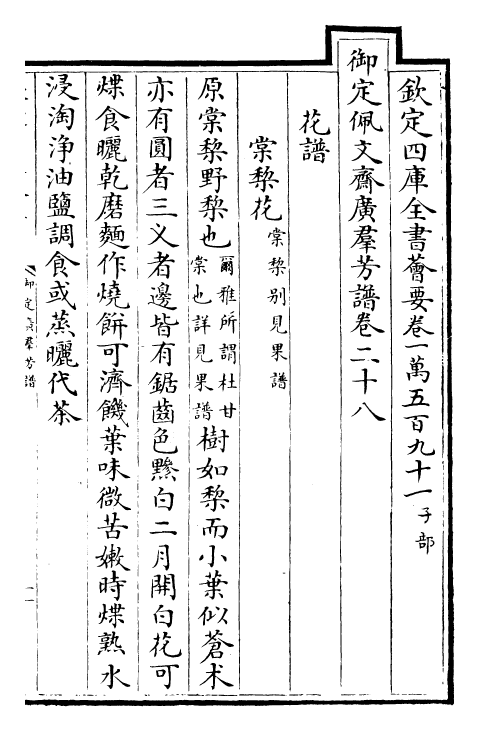 欽定四庫全書薈要卷一萬五百九十一子部
御定佩文齋廣羣芳譜卷二十八
花譜
棠棃花棠棃别見果譜
原棠棃野棃也爾雅所謂杜甘棠也詳見果譜樹如棃而小葉似蒼术
亦有圓者三义者邊皆有鋸齒色黲白二月開白花可
煠食曬乾磨麵作燒餅可濟饑葉味微苦嫩時煠熟水
浸淘浄油鹽調食或蒸曬代茶